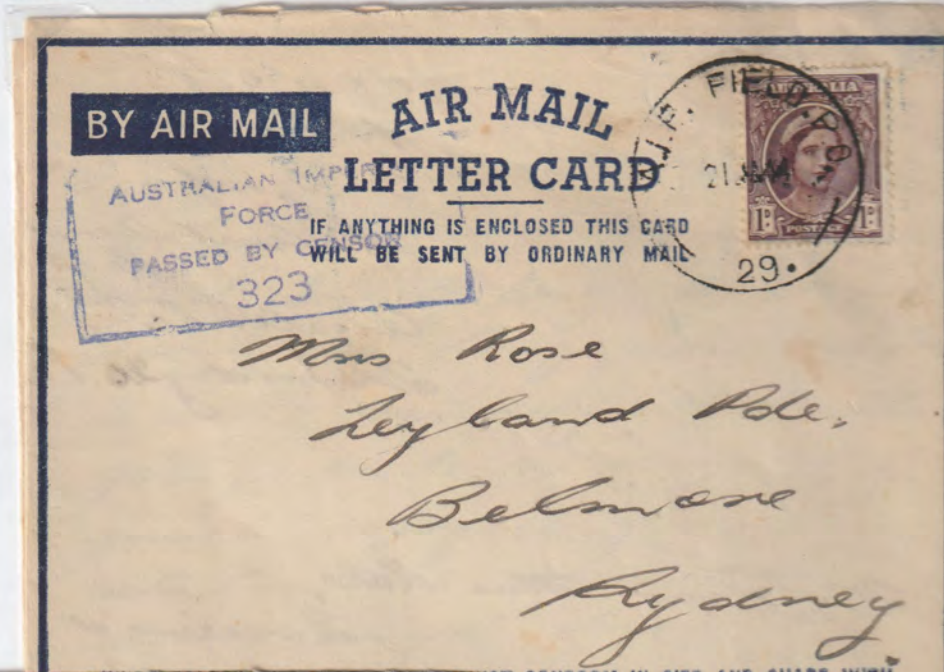 BY AIR MAIL
AIR MAIL
LETTER CARD
IF ANYTHING IS ENCLOSED THIS CARD
WILL BE SENT BY ORDINARY MAIL
AUSTRALIAN IMPERIAL
FORCE
PASSED BY CENSOR
323
FIELD P.O.
29.
AUSTRALIA
1D POSTAGE 1D
Mrs Rose
Leyland Pde,
Belmore
Sydney
IN SIZE AND SHAPE WITH